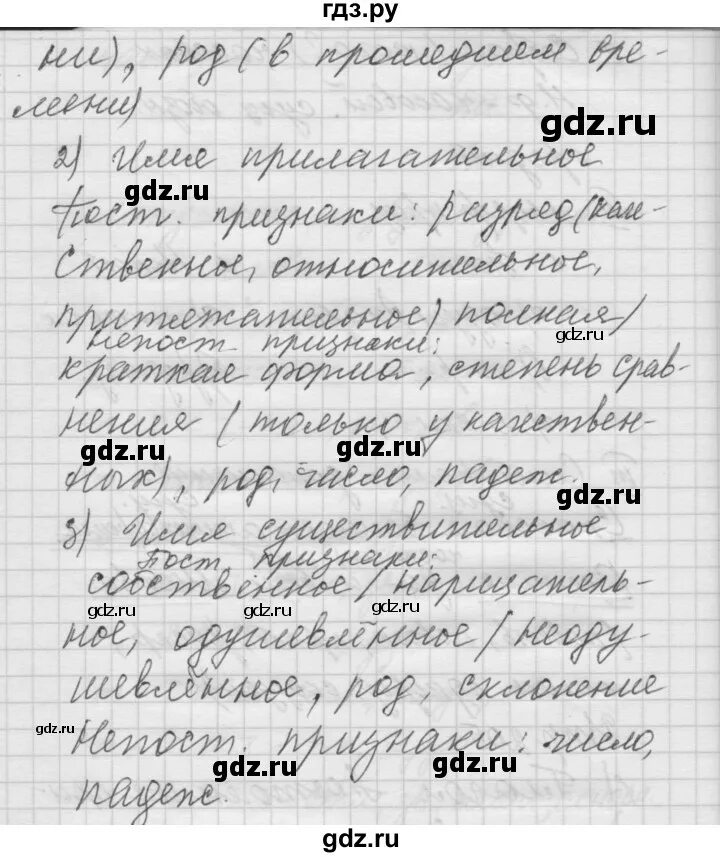 гдз.ру
ни), род (в прошедшем вре-
мени)
gdz.ru
2) Имя прилагательное
gdz.ru
Пост. признаки: разряд (кач-
ственное, относительное,
gdz.ru
притяжательное) полная/
gdz.ru
непост. признаки:
краткая форма, степень срав-
нения (только у качествен-
gdz.ru gdz.ru
ных), род, число, падеж.
gdz.ru
3) Имя существительное
Пост. признаки:
собственное/нарицатель-
gdz.ru gdz.ru gdz.ru
ное, одушевлённое/неоду-
шевлённое, род, склонение
gdz.ru
Непост. признаки: число,
gdz.ru gdz.ru
падеж.
gdz.ru